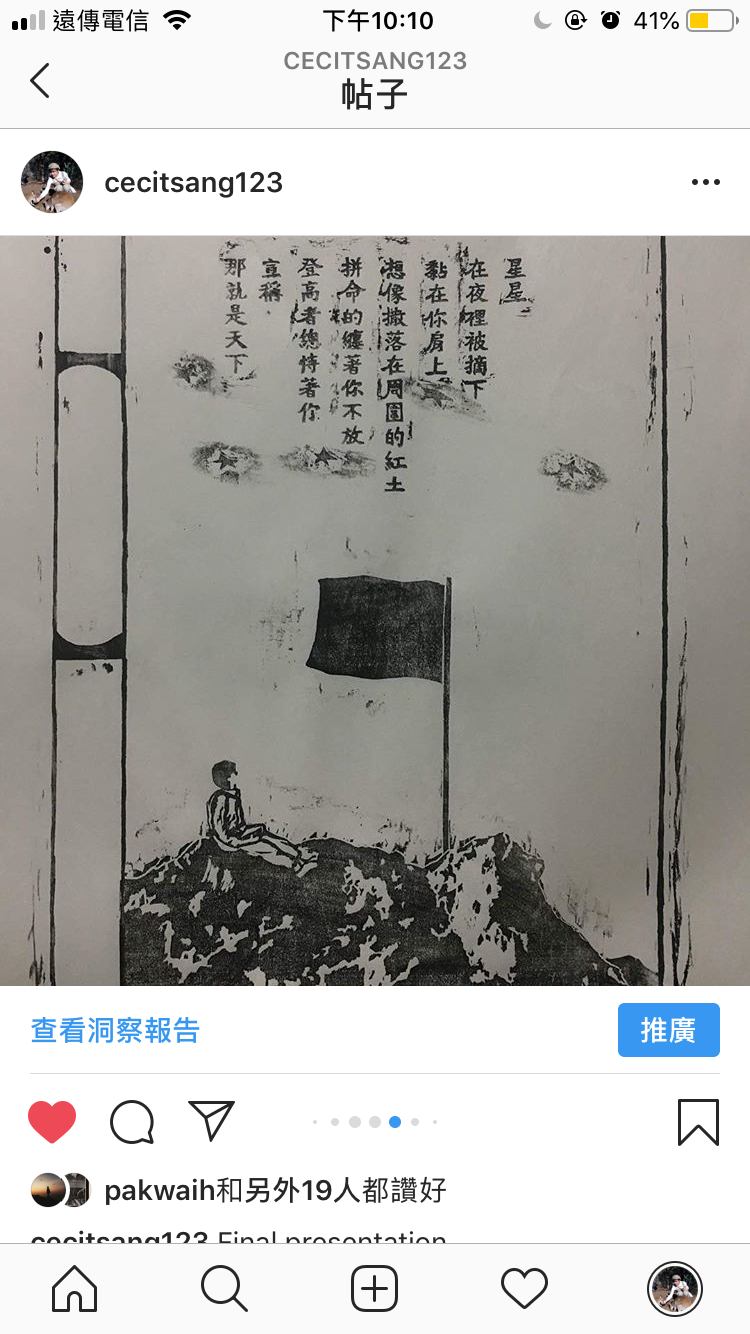 遠傳電信
下午10:10
41%
CECITSANG123
帖子
cecitsang123
星星
在夜裡被摘下
黏在你肩上
想像撒落在周圍的紅土
拼命的纏著你不放
登高者總恃著你
宣稱，
那就是天下
查看洞察報告
推廣
pakwaih和另外19人都讚好
cecitsang123 Final presentation